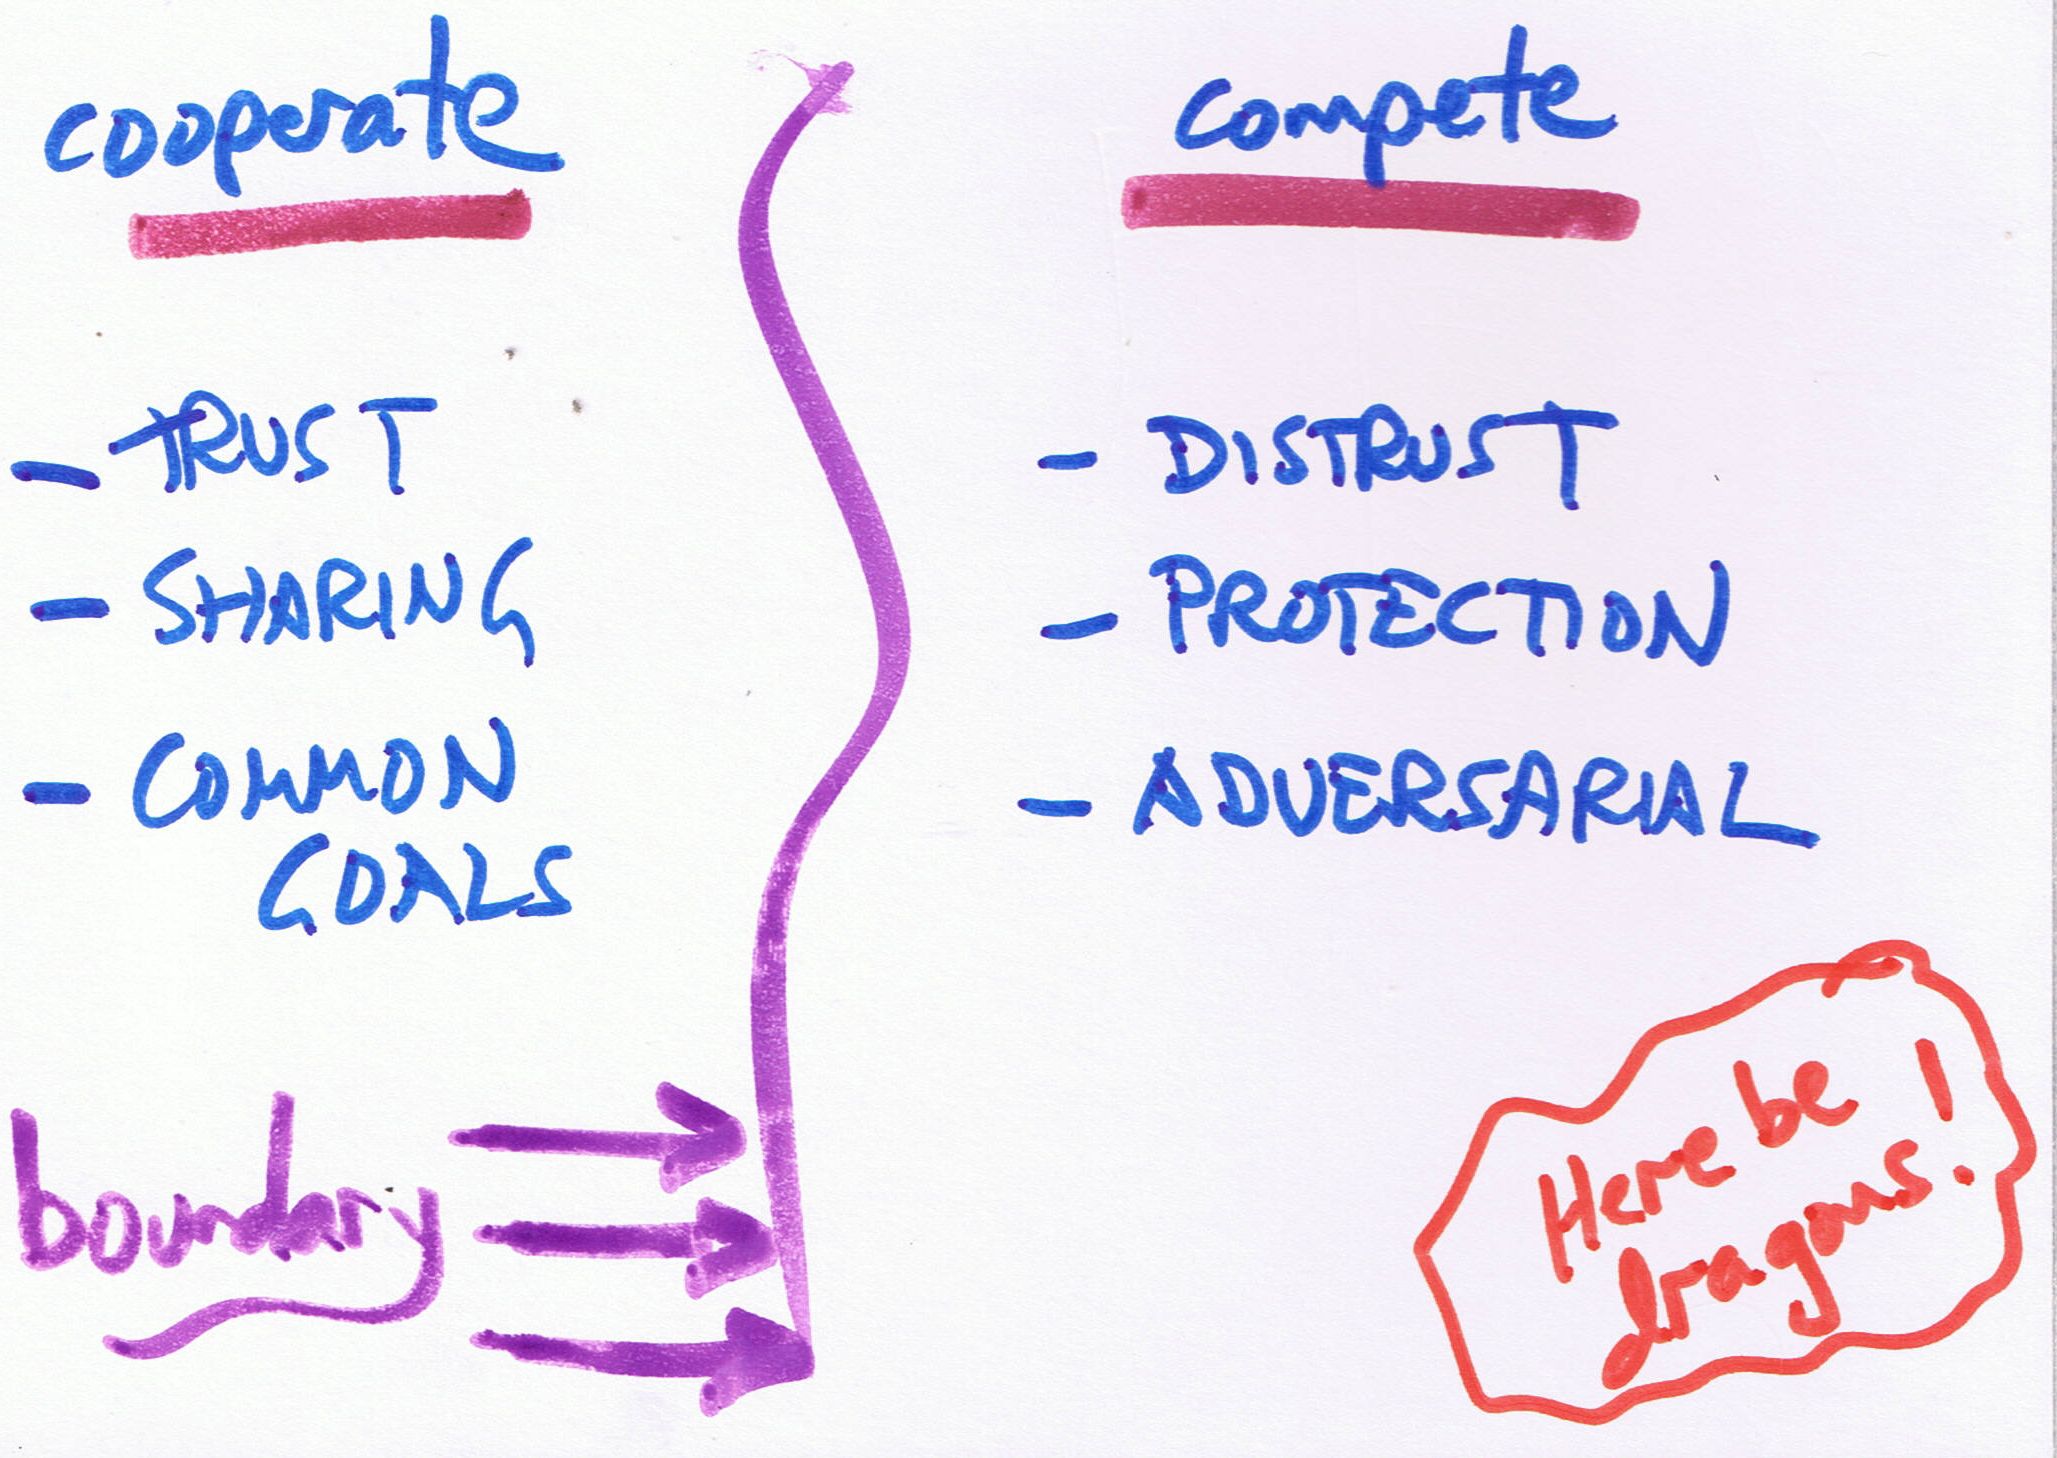 cooperate
- TRUST
- SHARING
- COMMON
GOALS
boundary
compete
- DISTRUST
- PROTECTION
- ADVERSARIAL
Here be
dragons!